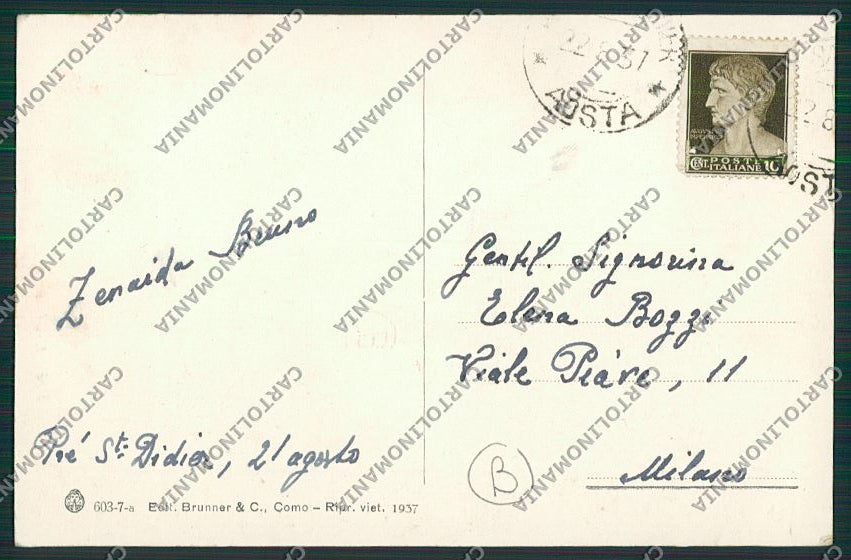 Zenaida Bruno
Pré St. Didier, 21 agosto
603-7-a Edit. Brunner & C., Como – Ripr. viet. 1937
AOSTA
CENT. POSTE 10
ITALIANE
Gentil. Signorina
Elena Bozzi
Viale Piave, 11
Milano
B
CARTOLINOMANIA